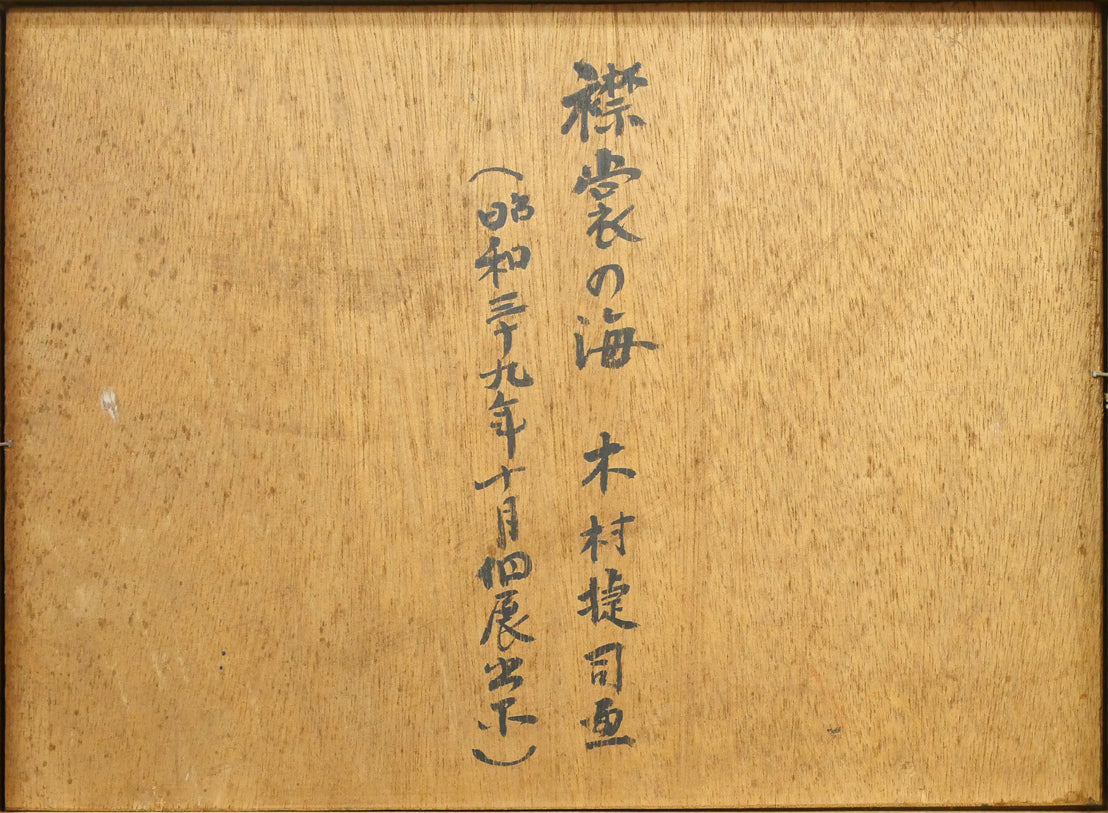 襟裳の海　木村捷司画
（昭和三十九年十月個展出品）